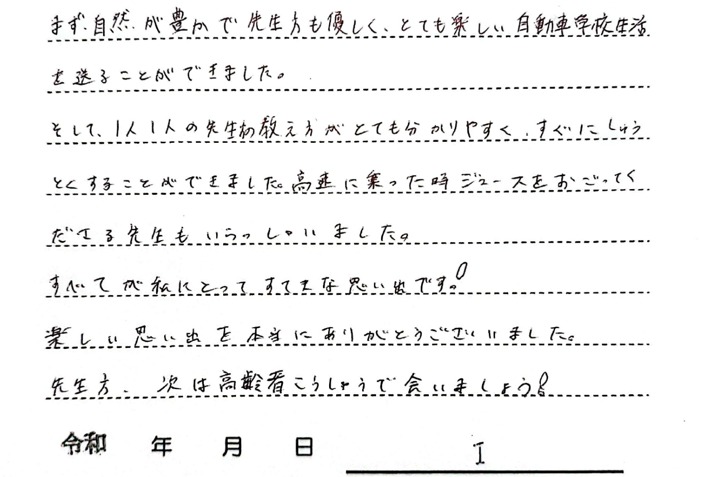 まず、自然が豊かで先生方も優しく、とても楽しい自動車学校生活
を送ることができました。
そして、1人1人の先生の教え方がとても分かりやすく、すぐにしゅう
とくすることができました。高速に乗った時ジュースをおごってく
ださる先生もいらっしゃいました。
すべてが私にとってすてきな思い出です!
楽しい思い出を本当にありがとうございました。
先生方、次は高齢者こうしゅうで会いましょう!
令和 年 月 日 I